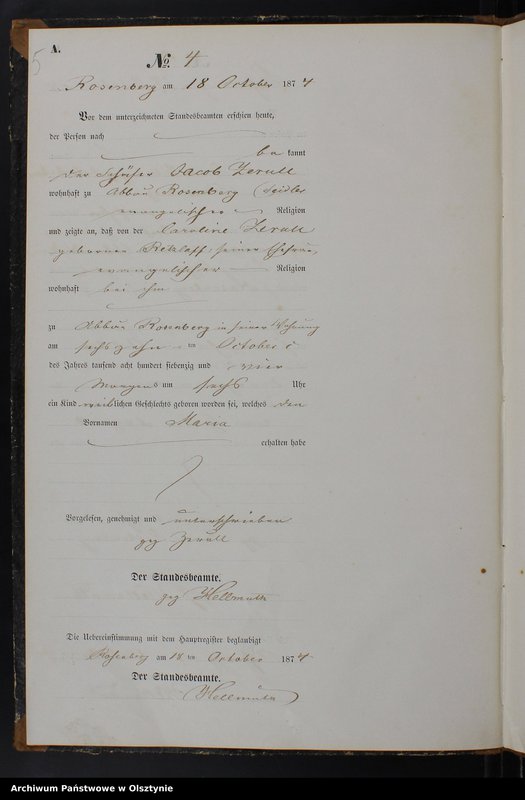 A.
No. 4
Rosenberg am 18 October 1874
Vor dem unterzeichneten Standesbeamten erschien heute,
der Person nach
bekannt
der Schäfer Jacob Zerull
wohnhaft zu Abbau Rosenberg
evangelischer Religion
und zeigte an, daß von der Caroline Zerull
geborenen Retzlaff, seiner Ehefrau,
evangelischer Religion
wohnhaft bei ihm
zu Abbau Rosenberg in seiner Wohnung
am sechszehn ten October
des Jahres tausend acht hundert siebenzig und vier
Morgens um sechs Uhr
ein Kind weiblichen Geschlechts geboren worden sei, welches den
Vornamen Maria
erhalten habe
Vorgelesen, genehmigt und unterschrieben
gez Zerull
Der Standesbeamte.
gez Hellmuth
Die Uebereinstimmung mit dem Hauptregister beglaubigt
Rosenberg am 18 ten October 1874
Der Standesbeamte.
Hellmuth
Archiwum Państwowe w Olsztynie